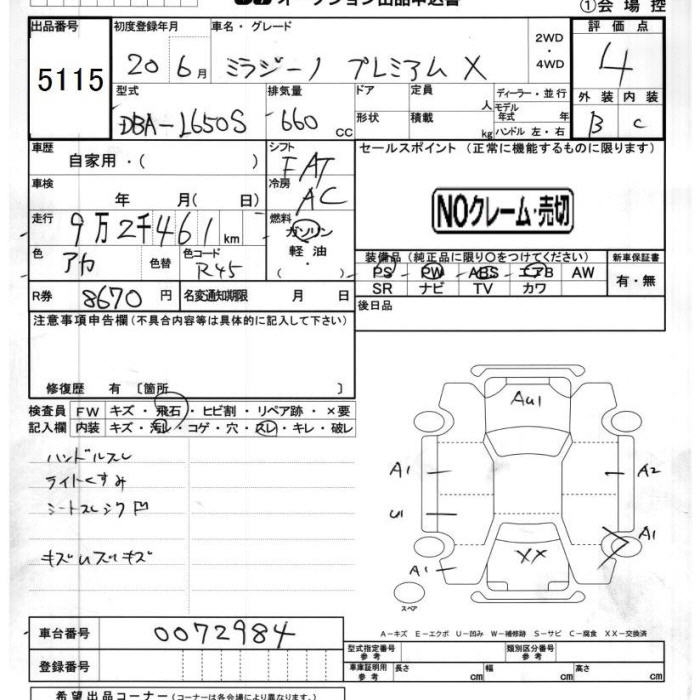 オークション出品申込書 ①会場控
出品番号 初度登録年月 車名・グレード 2WD ・ 4WD 評価点
5115 20 6月 ミラジーノ プレミアム X 4
型式 排気量 ドア 定員 人 ディーラー・並行 外装 内装
DBA-L650S 660 CC 形状 積載 kg モデル年式 年 ハンドル 左・右 B C
車歴 自家用・( ) シフト FAT セールスポイント (正常に機能するものに限ります)
車検 年 月( 日) 冷房 AC
NOクレーム・売切
走行 9万2千461km 燃料 ガソリン
軽油
・
( )
色 アカ 色替 色コード R45
装備品(純正品に限り○をつけてください) 新車保証書
PS PW ABS エアB AW 有・無
SR ナビ TV カワ
R券 8670円 名変通知期限 月 日 後日品
注意事項申告欄(不具合内容等は具体的に記入して下さい)
修復歴 有 〔箇所 〕
検査員 FW キズ・飛石・ヒビ割・リペア跡・×要
記入欄 内装 キズ・汚レ・コゲ・穴・スレ・キレ・破レ
ハンドルスレ
ライトくすみ
シートスレシワ凹
キズUズレキズ
AU1
A1 A2
U1 A1
XX
A1
スペア
A-キズ E-エクボ U-凹み W-補修跡 S-サビ C-腐食 XX-交換済
車台番号 0072984
型式指定番号 参考 類別区分番号 参考
登録番号 車庫証明用 参考 長さ cm 幅 cm 高さ cm
希望出品コーナー(各会場により異なります。)